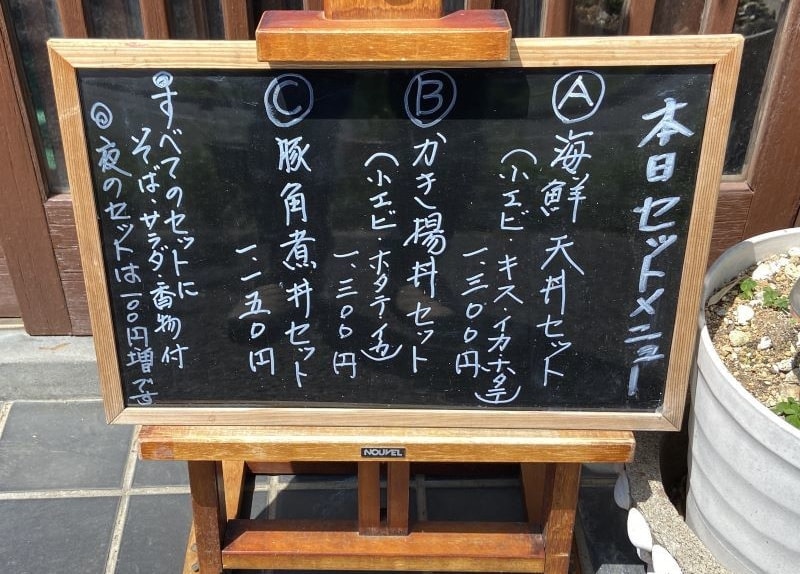 本日セットメニュー
Ⓐ 海鮮天丼セット
(小エビ・キス・イカ・ホタテ)
一、三〇〇円
Ⓑ かき揚丼セット
(小エビ・ホタテ・イカ)
一、三〇〇円
Ⓒ 豚角煮丼セット
一、一五〇円
◎すべてのセットに
そば・サラダ・香物付
◎夜のセットは一〇〇円増です
NOUVEL